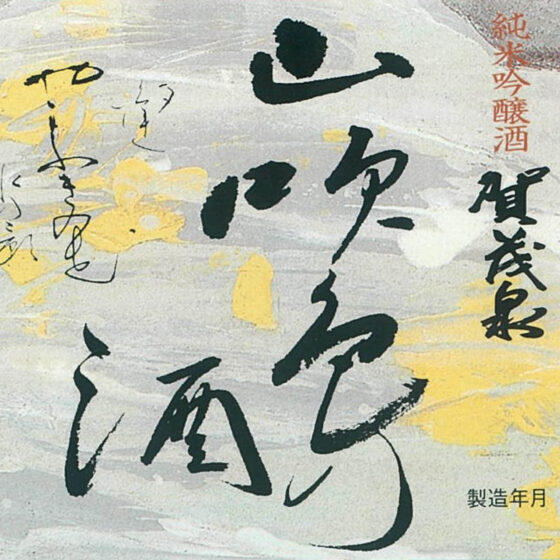 純米吟醸酒
賀茂泉
山吹色の
酒
製造年月